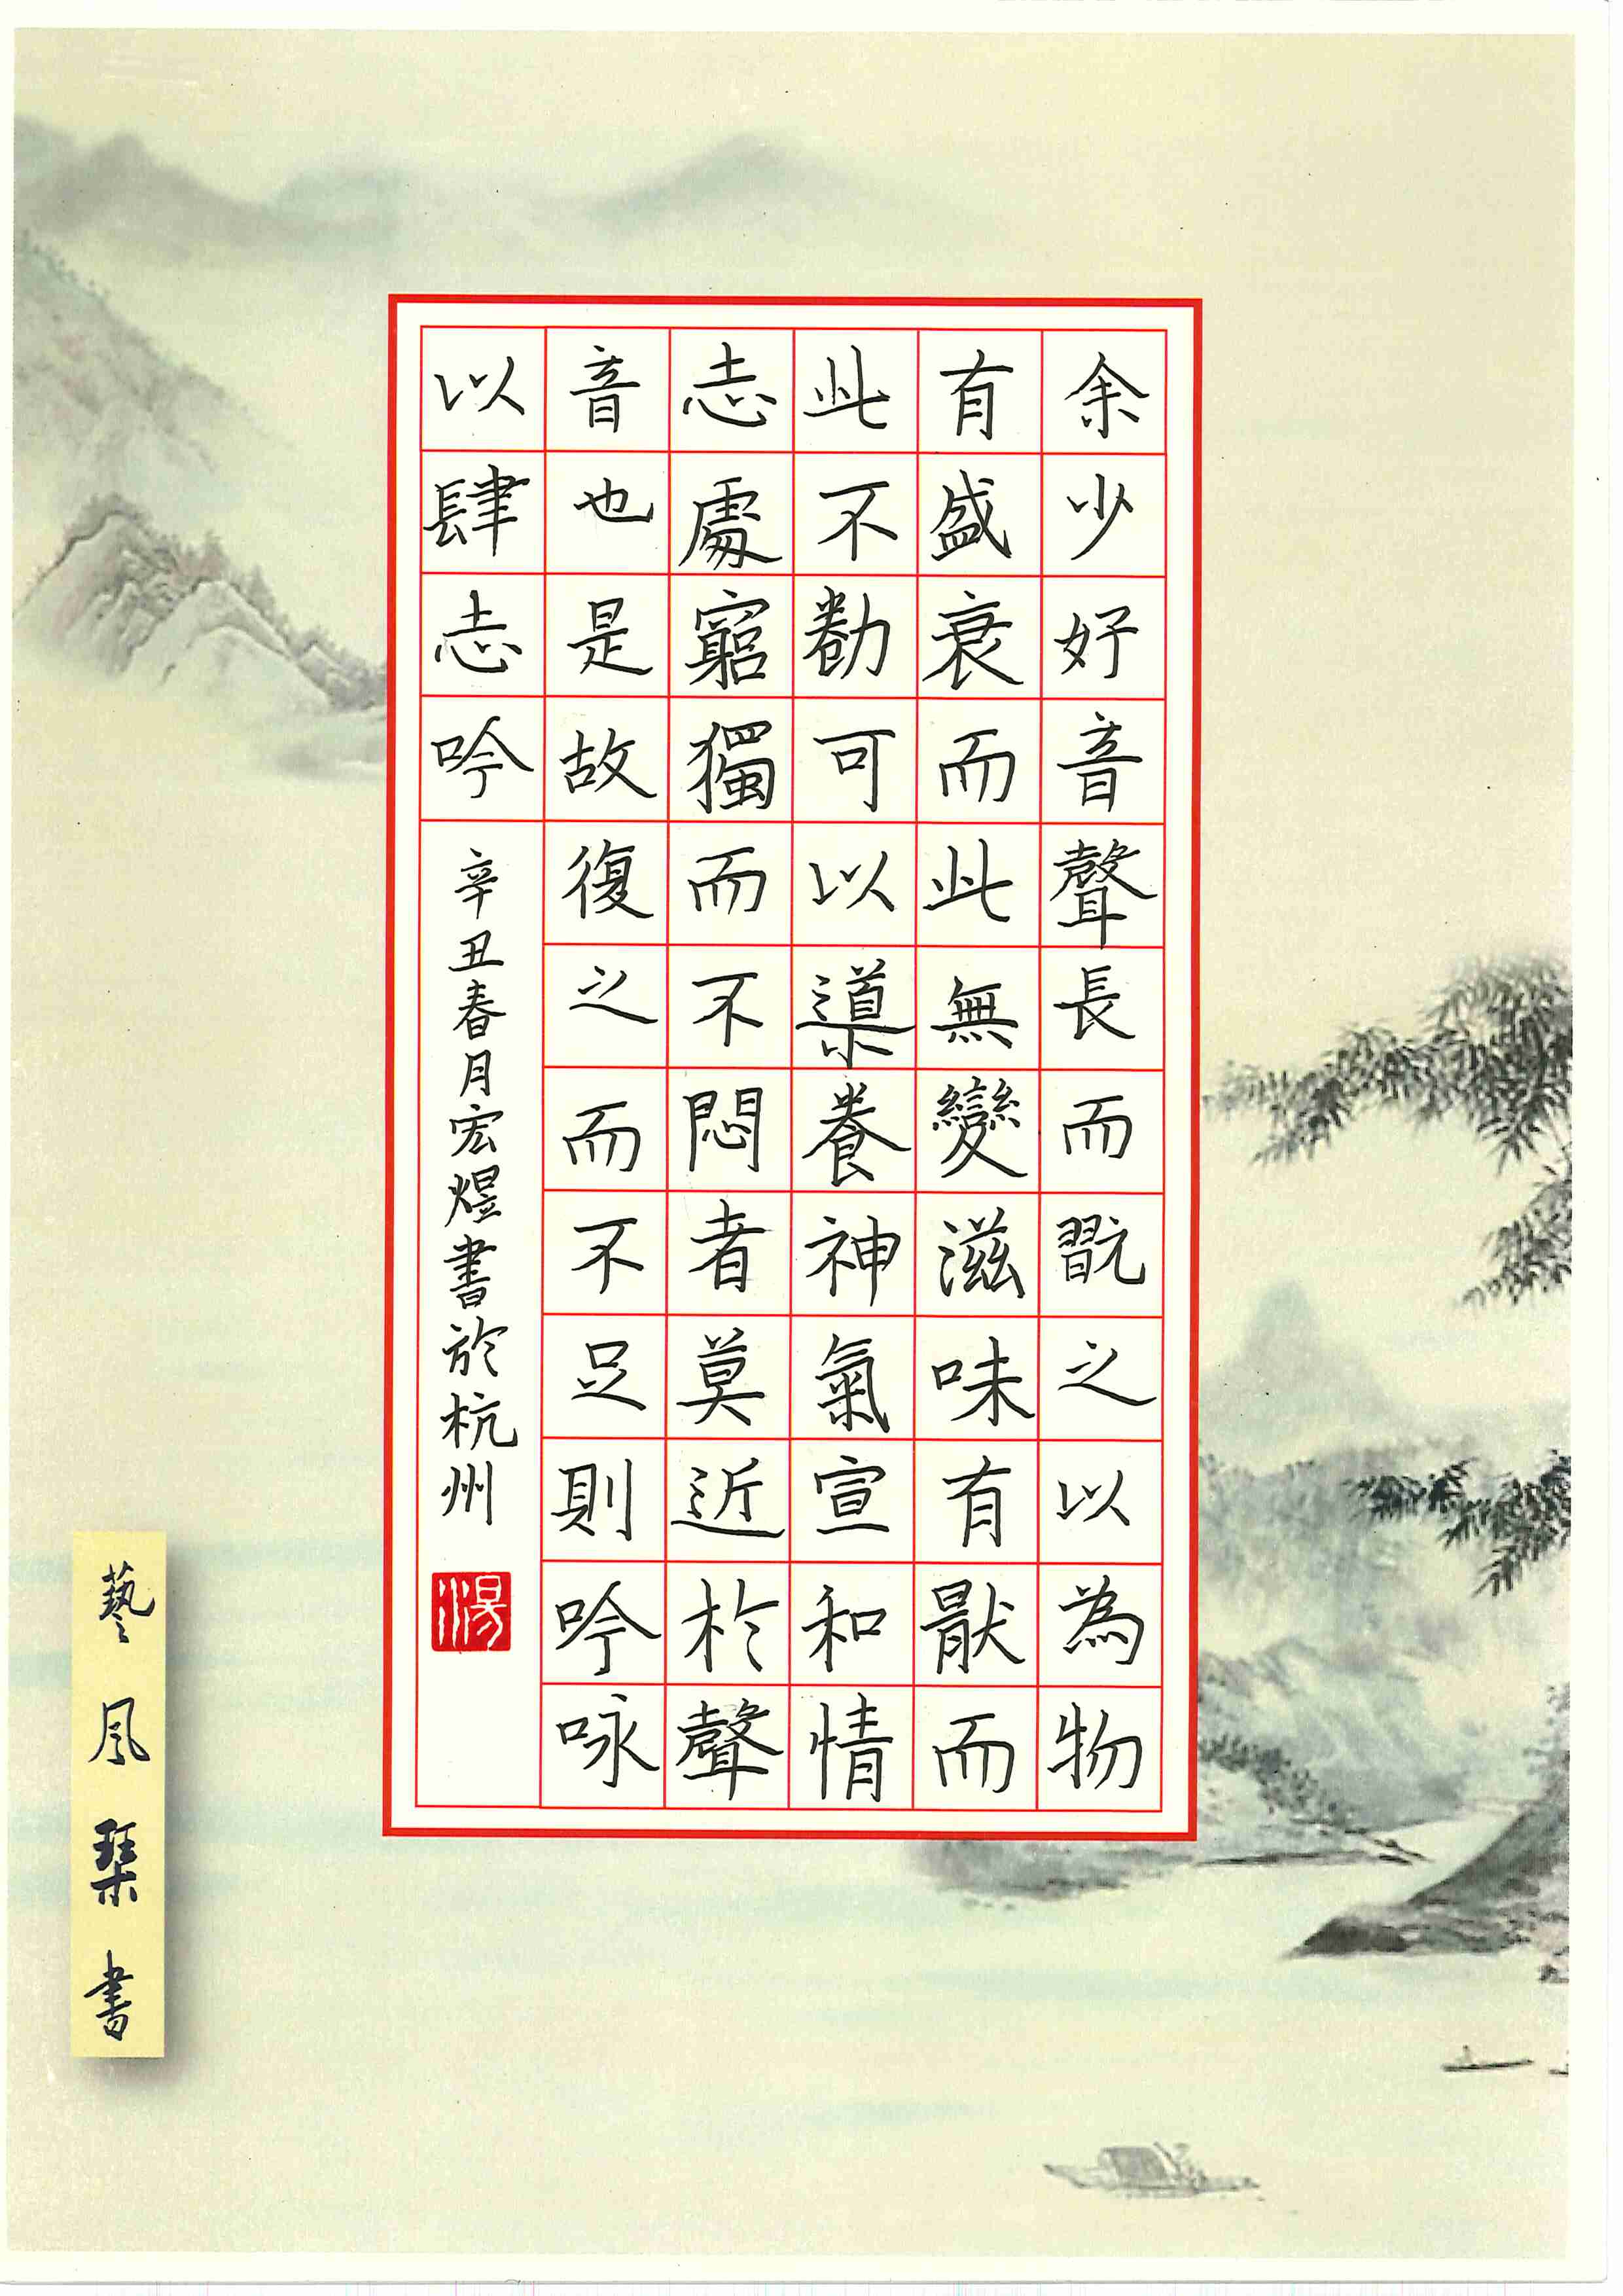 余少好音聲長而翫之以為物
有盛衰而此無變滋味有猒而
此不勌可以導養神氣宣和情
志處窮獨而不悶者莫近於聲
音也是故復之而不足則吟咏
以肆志吟
辛丑春月宏煜書於杭州
湯
藝風琹書